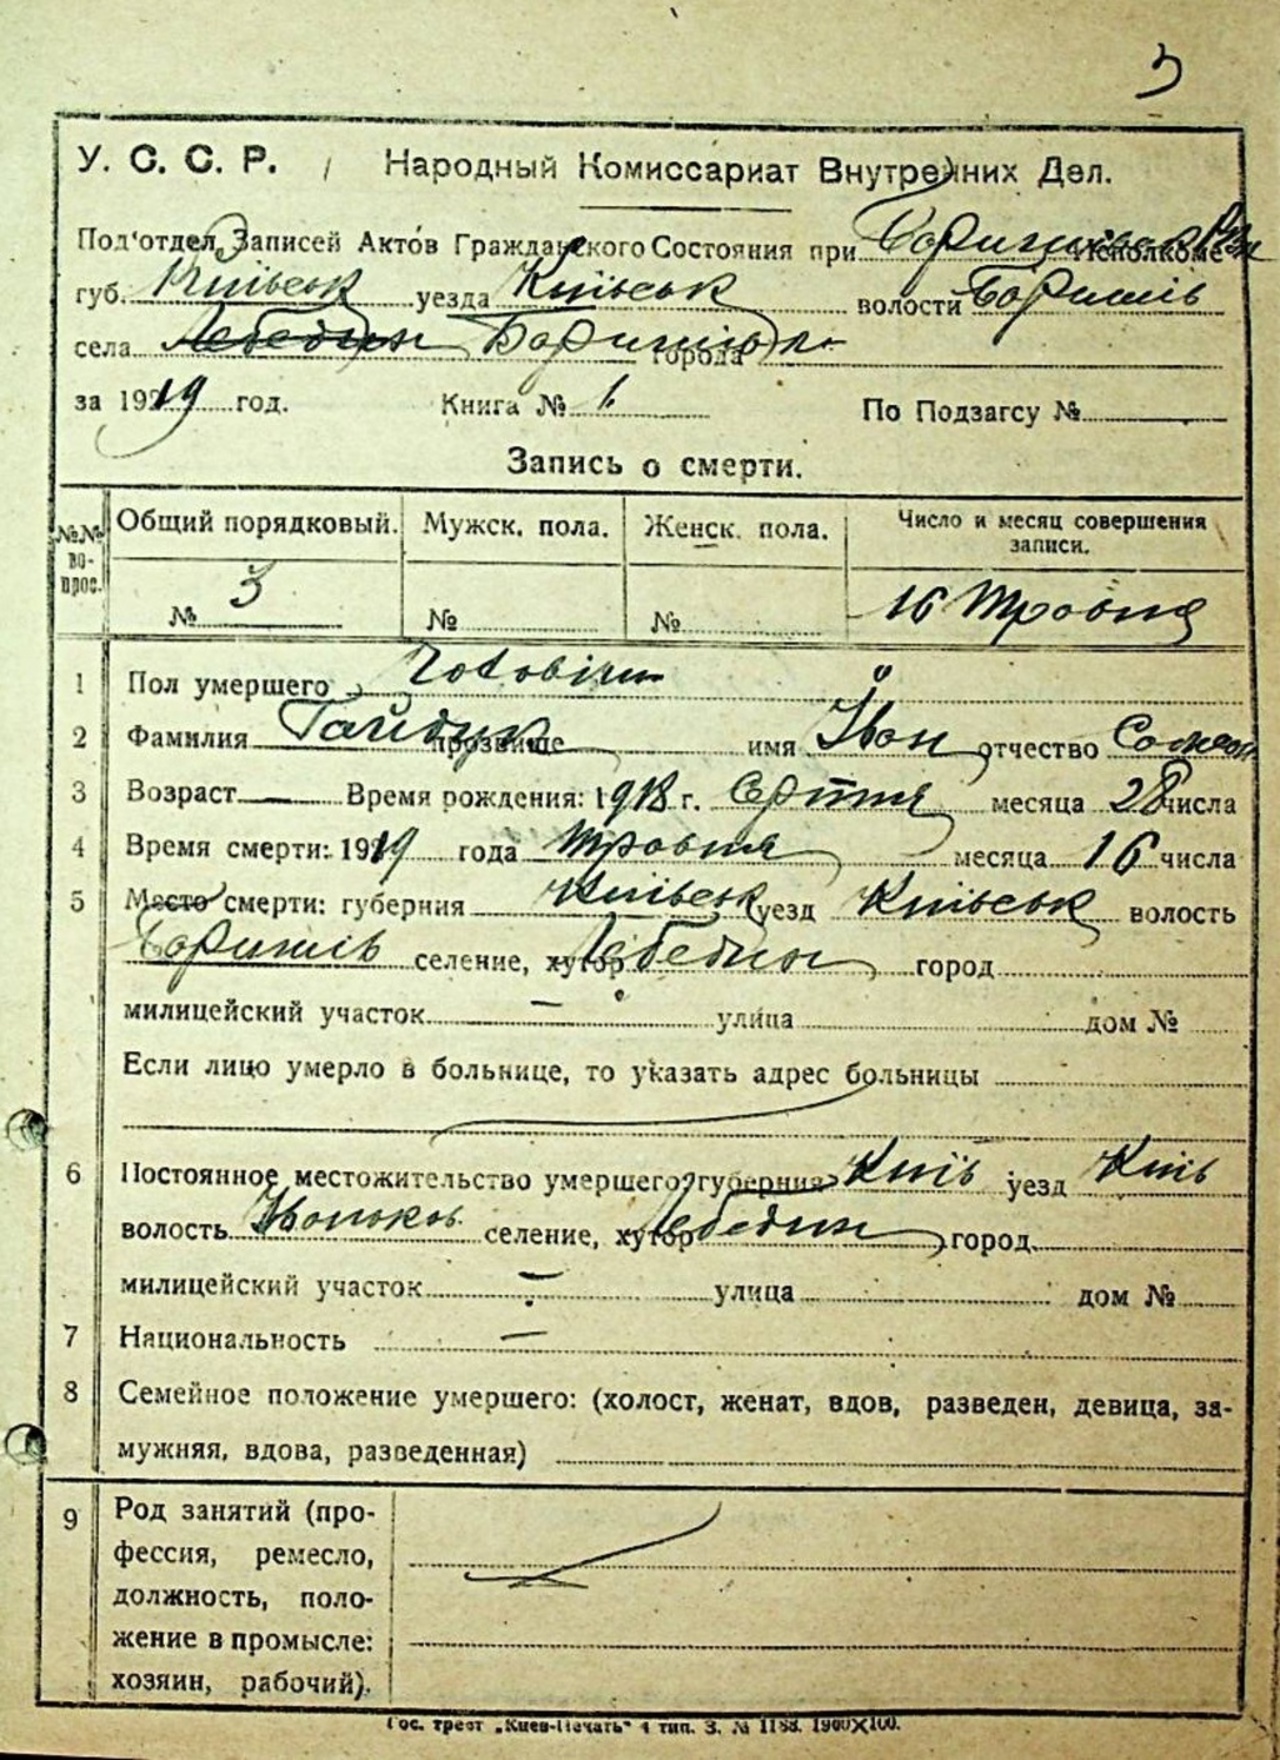 3
У. С. С. Р. Народный Комиссариат Внутренних Дел.
Под'отдел Записей Актов Гражданского Состояния при Исполкоме
губ. Київськ уезда Київськ волости Боришпіль
села Лебедин города
за 1919 год. Книга № 1. По Подзагсу №
Запись о смерти.
№№ вопрос. Общий порядковый. Мужск. пола. Женск. пола. Число и месяц совершения записи.
№ 3 № № 16 Травня
1 Пол умершего Чоловічи
2 Фамилия Гайдук прозвище имя Іван отчество
3 Возраст Время рождения: 1918 г. Серпня месяца 28 числа
4 Время смерти: 1919 года Травня месяца 16 числа
5 Место смерти: губерния Київськ уезд Київськ волость
Боришпіль селение, хутор Лебедин город
милицейский участок — улица дом №
Если лицо умерло в больнице, то указать адрес больницы
6 Постоянное местожительство умершего: губерния Київ уезд Київ
волость Іваньков селение, хутор Лебедин город
милицейский участок — улица дом №
7 Национальность —
8 Семейное положение умершего: (холост, женат, вдов, разведен, девица, за-
мужняя, вдова, разведенная)
9 Род занятий (про-
фессия, ремесло,
должность, поло-
жение в промысле:
хозяин, рабочий).
Гос. трест „Киев-Печать" 4 тип. З. № 1188. 1900×100.